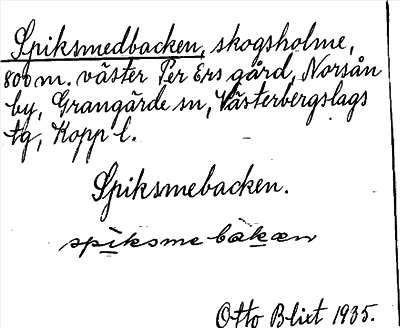 Spiksmedbacken, skogsholme,
800 m. väster Per Ers gård, Norsån
by, Grangärde sn, Västerbergslags
tg, Kopp l.
Spiksmebacken.
spiksmebakæn
Otto Blixt 1935.